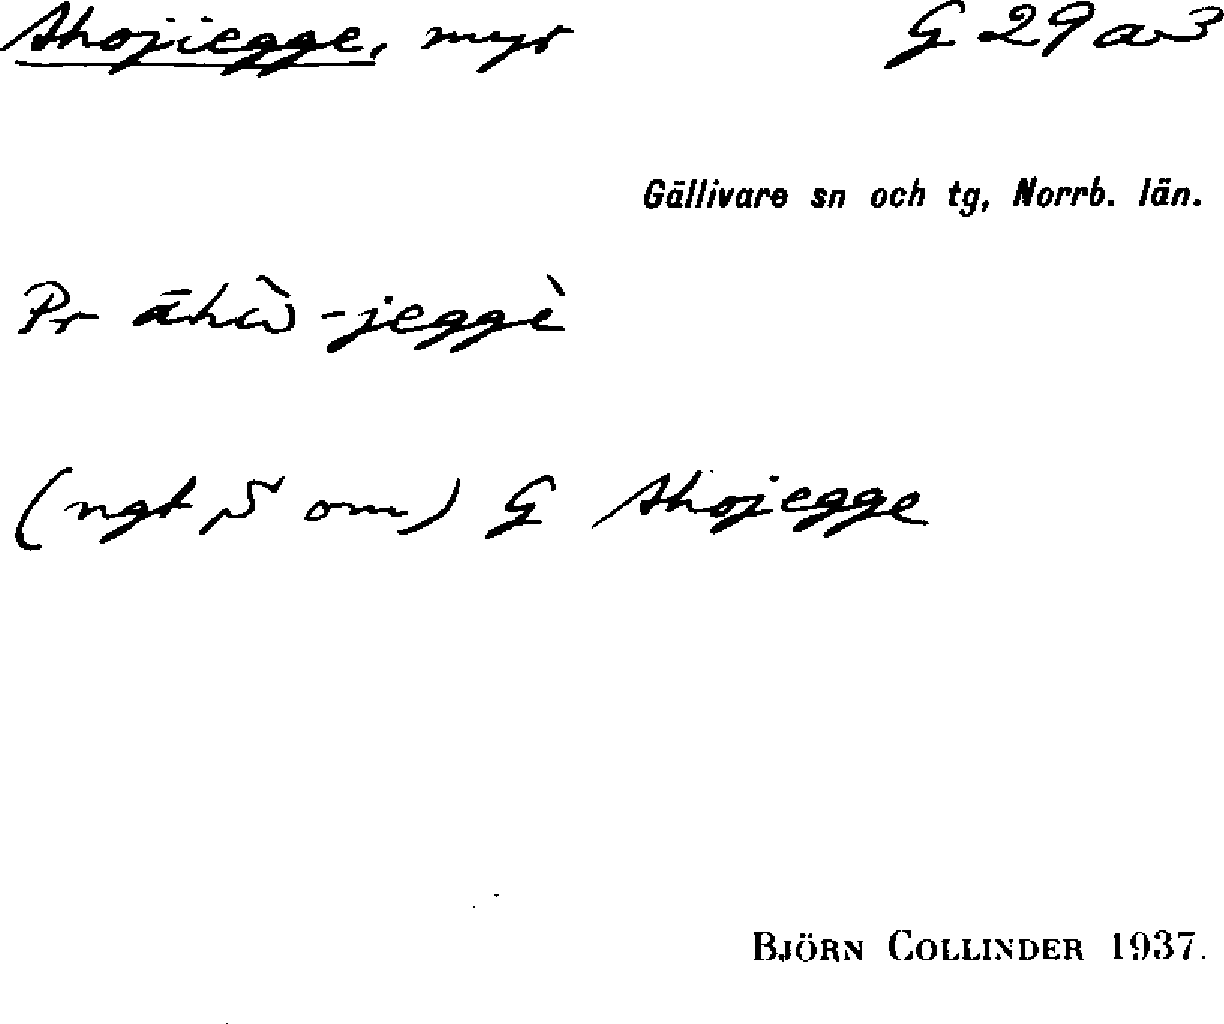 Ahojiegge, myr G 29 a 3
Gällivare sn och tg, Norrb. län.
Pr āhὼ -jeggè
(ngt S om) G Ahojegge
BJÖRN COLLINDER 1937.